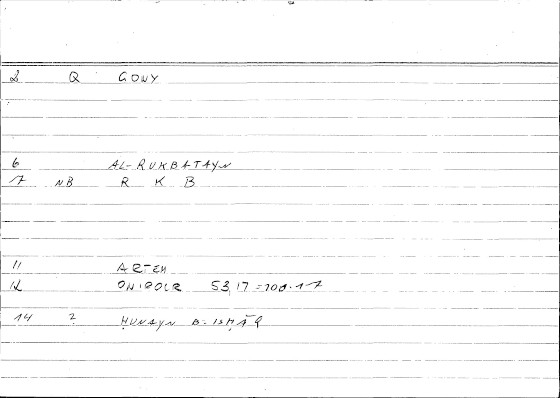 2 Q GONY
6 AL-RUKBATAYN
7 NB R K B
11 ARTEM
12 53,17 = 108.17
14 ? ḤUNAYN B. ISḤĀQ